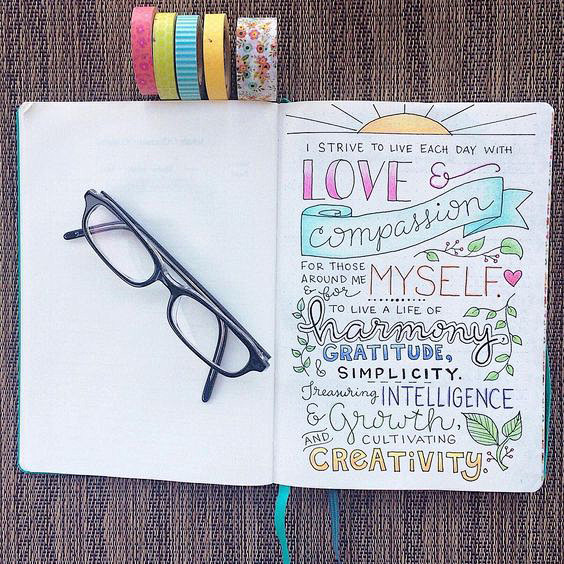 I STRIVE TO LIVE EACH DAY WITH
LOVE &
compassion
FOR THOSE
AROUND ME
& for MYSELF.
TO LIVE A LIFE OF
harmony
GRATITUDE,
& SIMPLICITY.
Treasuring INTELLIGENCE
& Growth,
AND CULTIVATING
CREATIVITY.